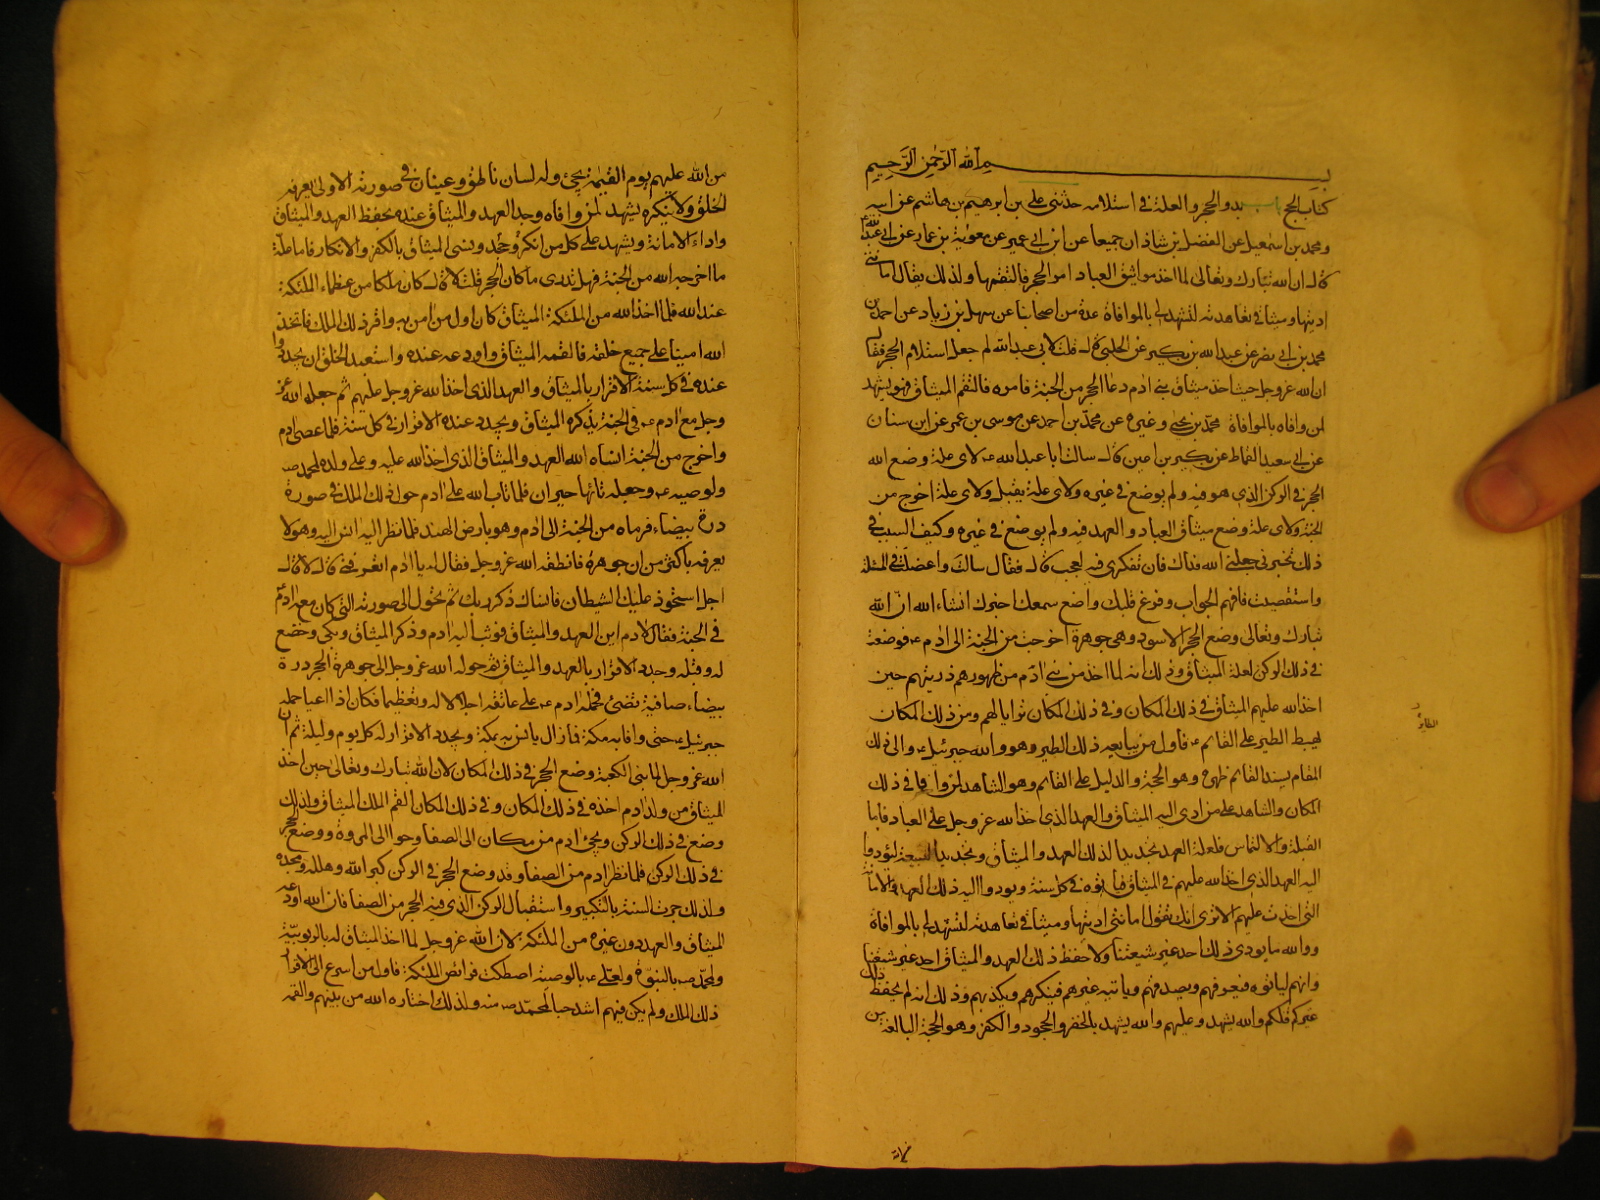 بسم الله الرحمن الرحيم
كتاب الحج باب بدو الحجر والعلة في استلامه حدثني علي بن ابرهيم بن هاشم عن ابيه
ومحمد بن اسمعيل عن الفضل بن شاذان جميعا عن ابن ابي عمير عن معوية بن عمار عن ابي عبد الله ع
قال ان الله تبارك وتعالى لما اخذ مواثيق العباد امر الحجر فالتقمها ولذلك يقال امانتي
اديتها وميثاقي تعاهدته لتشهد لي بالموافاة عدة من اصحابنا عن سهل بن زياد عن احمد بن
محمد بن ابي نصر عن عبد الله بن بكير عن الحلبي قال قلت لابي عبد الله لم جعل استلام الحجر فقال
ان الله عز وجل حيث اخذ ميثاق بني ادم دعا الحجر من الجنة فامره فالتقم الميثاق فهو يشهد
لمن وافاه بالموافاة محمد بن يحيى وغيره عن محمد بن احمد عن موسى بن عمر عن ابن سنان
عن ابي سعيد القماط عن بكير بن اعين قال سالت ابا عبد الله ع لاي علة وضع الله
الحجر في الركن الذي هو فيه ولم يوضع في غيره ولاي علة يقبل ولاي علة اخرج من
الجنة ولاي علة وضع ميثاق العباد والعهد فيه ولم يوضع في غيره وكيف السبب في
ذلك تخبرني جعلني الله فداك فان تفكري فيه لعجب قال فقال سالت واعضلت في المسئلة
واستقصيت فافهم الجواب وفرغ قلبك واصغ سمعك اخبرك انشاء الله ان الله
تبارك وتعالى وضع الحجر الاسود وهي جوهرة اخرجت من الجنة الى ادم ع فوضعت
في ذلك الركن لعلة الميثاق وذلك انه لما اخذ من بني ادم من ظهورهم ذريتهم حين
اخذ الله عليهم الميثاق في ذلك المكان وفي ذلك المكان تراىا لهم ومن ذلك المكان
يهبط الطير على القائم ع فاول من يبايعه ذلك الطير وهو والله جبرئيل ع والى ذلك
المقام يسند القائم ظهره وهو الحجة والدليل على القائم وهو الشاهد لمن وافا في ذلك
المكان والشاهد على من ادى اليه الميثاق والعهد الذي اخذ الله عز وجل على العباد فاما
القبلة والالتماس فلعلة العهد تجديدا لذلك العهد والميثاق وتجديدا للبيعة ليؤدوا
اليه العهد الذي اخذ الله عليهم في الميثاق فياتوه في كل سنة ويودوا اليه ذلك العهد والامانة
التي اخذت عليهم الا ترى انك تقول امانتي اديتها وميثاقي تعاهدته لتشهد لي بالموافاة
ووالله ما يودي ذلك احد غير شيعتنا ولا حفظ ذلك العهد والميثاق احد غير شيعتنا
وانهم لياتوه فيعرفهم ويصدقهم وياتيه غيرهم فينكرهم ويكذبهم وذلك انه لم يحفظ ذلك
غيركم فلكم والله يشهد وعليهم والله يشهد بالخفر والجحود والكفر وهو الحجة البالغة
من الله عليهم يوم القيمة يجيء وله لسان ناطق وعينان في صورته الاولى يعرفه
الخلق ولا ينكره يشهد لمن وافاه وجدد العهد والميثاق عنده بحفظ العهد والميثاق
واداء الامانة ويشهد على كل من انكر وجحد ونسي الميثاق بالكفر والانكار فاما علة
ما اخرجه الله من الجنة فهل تدري ما كان الحجر قلت لا قال كان ملكا من عظماء الملئكة
عند الله فلما اخذ الله من الملئكة الميثاق كان اول من امن به واقر ذلك الملك فاتخذه
الله امينا على جميع خلقه فالقمه الميثاق واودعه عنده واستعبد الخلق ان يجددوا
عنده في كل سنة الاقرار بالميثاق والعهد الذي اخذ الله عز وجل عليهم ثم جعله الله عز
وجل مع ادم ع في الجنة يذكره الميثاق ويجدد عنده الاقرار في كل سنة فلما عصى ادم
واخرج من الجنة انساه الله العهد والميثاق الذي اخذ الله عليه وعلى ولده لمحمد ص
ولوصيه ع وجعله تائها حيران فلما تاب الله على ادم حول ذلك الملك في صورة
درة بيضاء فرماه من الجنة الى ادم وهو بارض الهند فلما نظر اليه انس اليه وهو لا
يعرفه باكثر من ان جوهرة فانطقه الله عز وجل فقال له يا ادم اتعرفني قال لا قال
اجل استحوذ عليك الشيطان فانساك ذكر ربك ثم تحول الى صورته التي كان مع ادم
في الجنة فقال لادم اين العهد والميثاق فوثب اليه ادم وذكر الميثاق وبكى وخضع
له وقبله وجدد الاقرار بالعهد والميثاق ثم حوله الله عز وجل الى جوهرة الحجر درة
بيضاء صافية تضئ فحمله ادم ع على عاتقه اجلالا له وتعظيما فكان اذا اعيا حمله
جبرئيل ع حتى وافا به مكة فما زال يانس به بمكة ويجدد الاقرار له كل يوم وليلة ثم ان
الله عز وجل لما بنى الكعبة وضع الحجر في ذلك المكان لان الله تبارك وتعالى حين اخذ
الميثاق من ولد ادم اخذه في ذلك المكان وفي ذلك المكان القم الملك الميثاق ولذلك
وضع في ذلك الركن ونحى ادم من مكان الى الصفا وحوا الى المروة ووضع الحجر
في ذلك الركن فلما نظر ادم من الصفا وقد وضع الحجر في الركن كبر الله وهلله ومجده
ولذلك جرت السنة بالتكبير واستقبال الركن الذي فيه الحجر من الصفا فان الله اودعه
الميثاق والعهد دون غيره من الملئكة لان الله عز وجل لما اخذ الميثاق له بالربوبية
ولمحمد ص بالنبوة ولعلي ع بالوصية اصطكت فرائص الملئكة فاول من اسرع الى الاقرار
ذلك الملك ولم يكن فيهم اشد حبا لمحمد ص منه ولذلك اختاره الله من بينهم والقمه